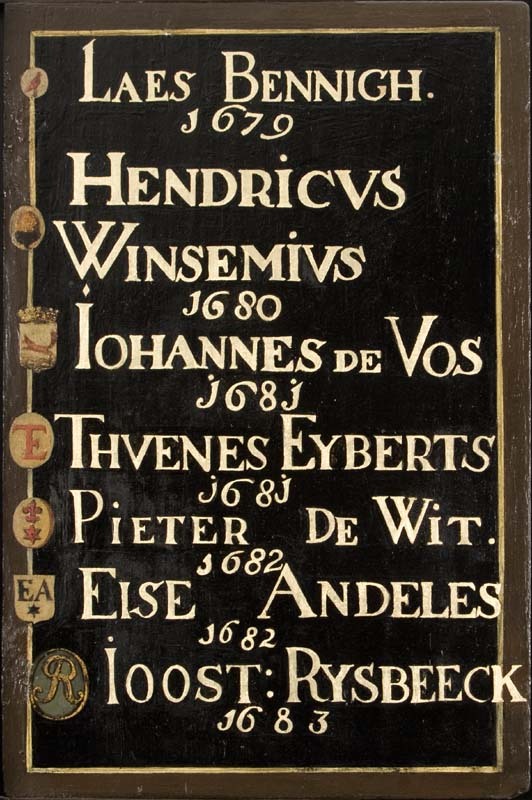 LAES BENNIGH.
1679
HENDRICVS
WINSEMIVS
1680
IOHANNES DE VOS
1681
T THVENES EYBERTS
1681
PIETER DE WIT.
1682
EA EISE ANDELES
1682
R IOOST: RYSBEECK
1683